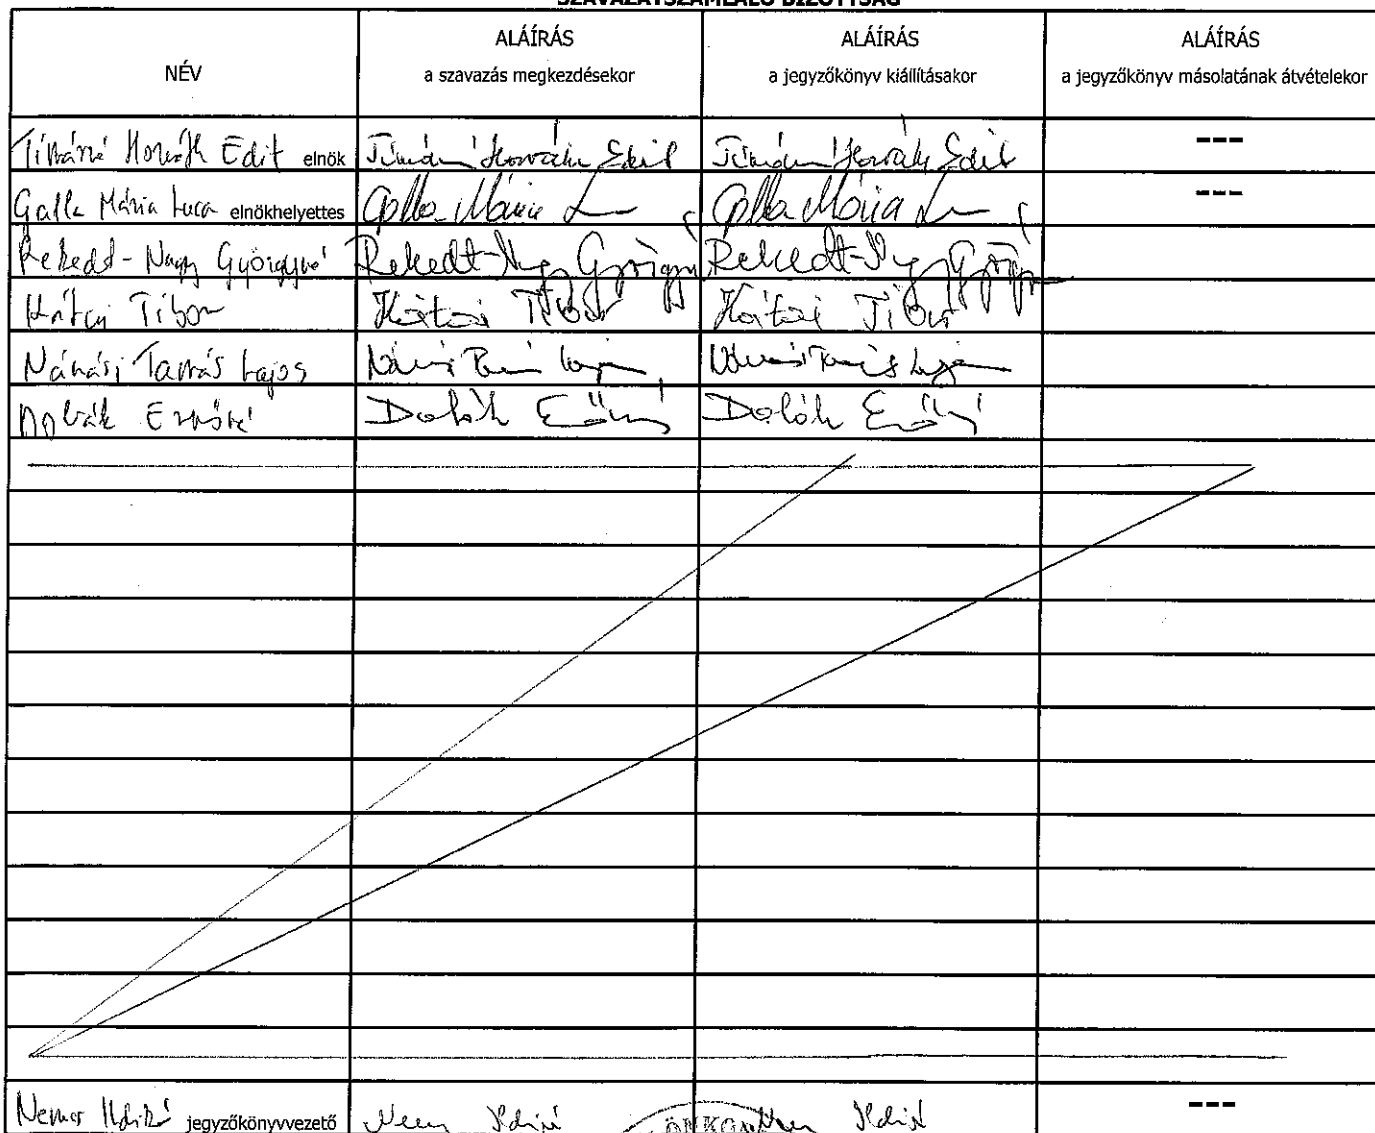 SZAVAZATSZÁMLÁLÓ BIZOTTSÁG
NÉV
ALÁÍRÁS
a szavazás megkezdésekor
ALÁÍRÁS
a jegyzőkönyv kiállításakor
ALÁÍRÁS
a jegyzőkönyv másolatának átvételekor
Timárné Horváth Edit elnök Timárné Horváth Edit Timárné Horváth Edit ---
Galla Mária Luca elnökhelyettes Galla Mária Galla Mária ---
Rekedt-Nagy Györgyné Rekedt-Nagy Györgyné Rekedt-Nagy Györgyné
Kátai Tibor Kátai Tibor Kátai Tibor
Nánási Tamás Lajos Nánási Tamás Lajos Nánási Tamás Lajos
Ernőné Ernőné Ernőné
Ildikó jegyzőkönyvvezető Ildikó Ildikó ---